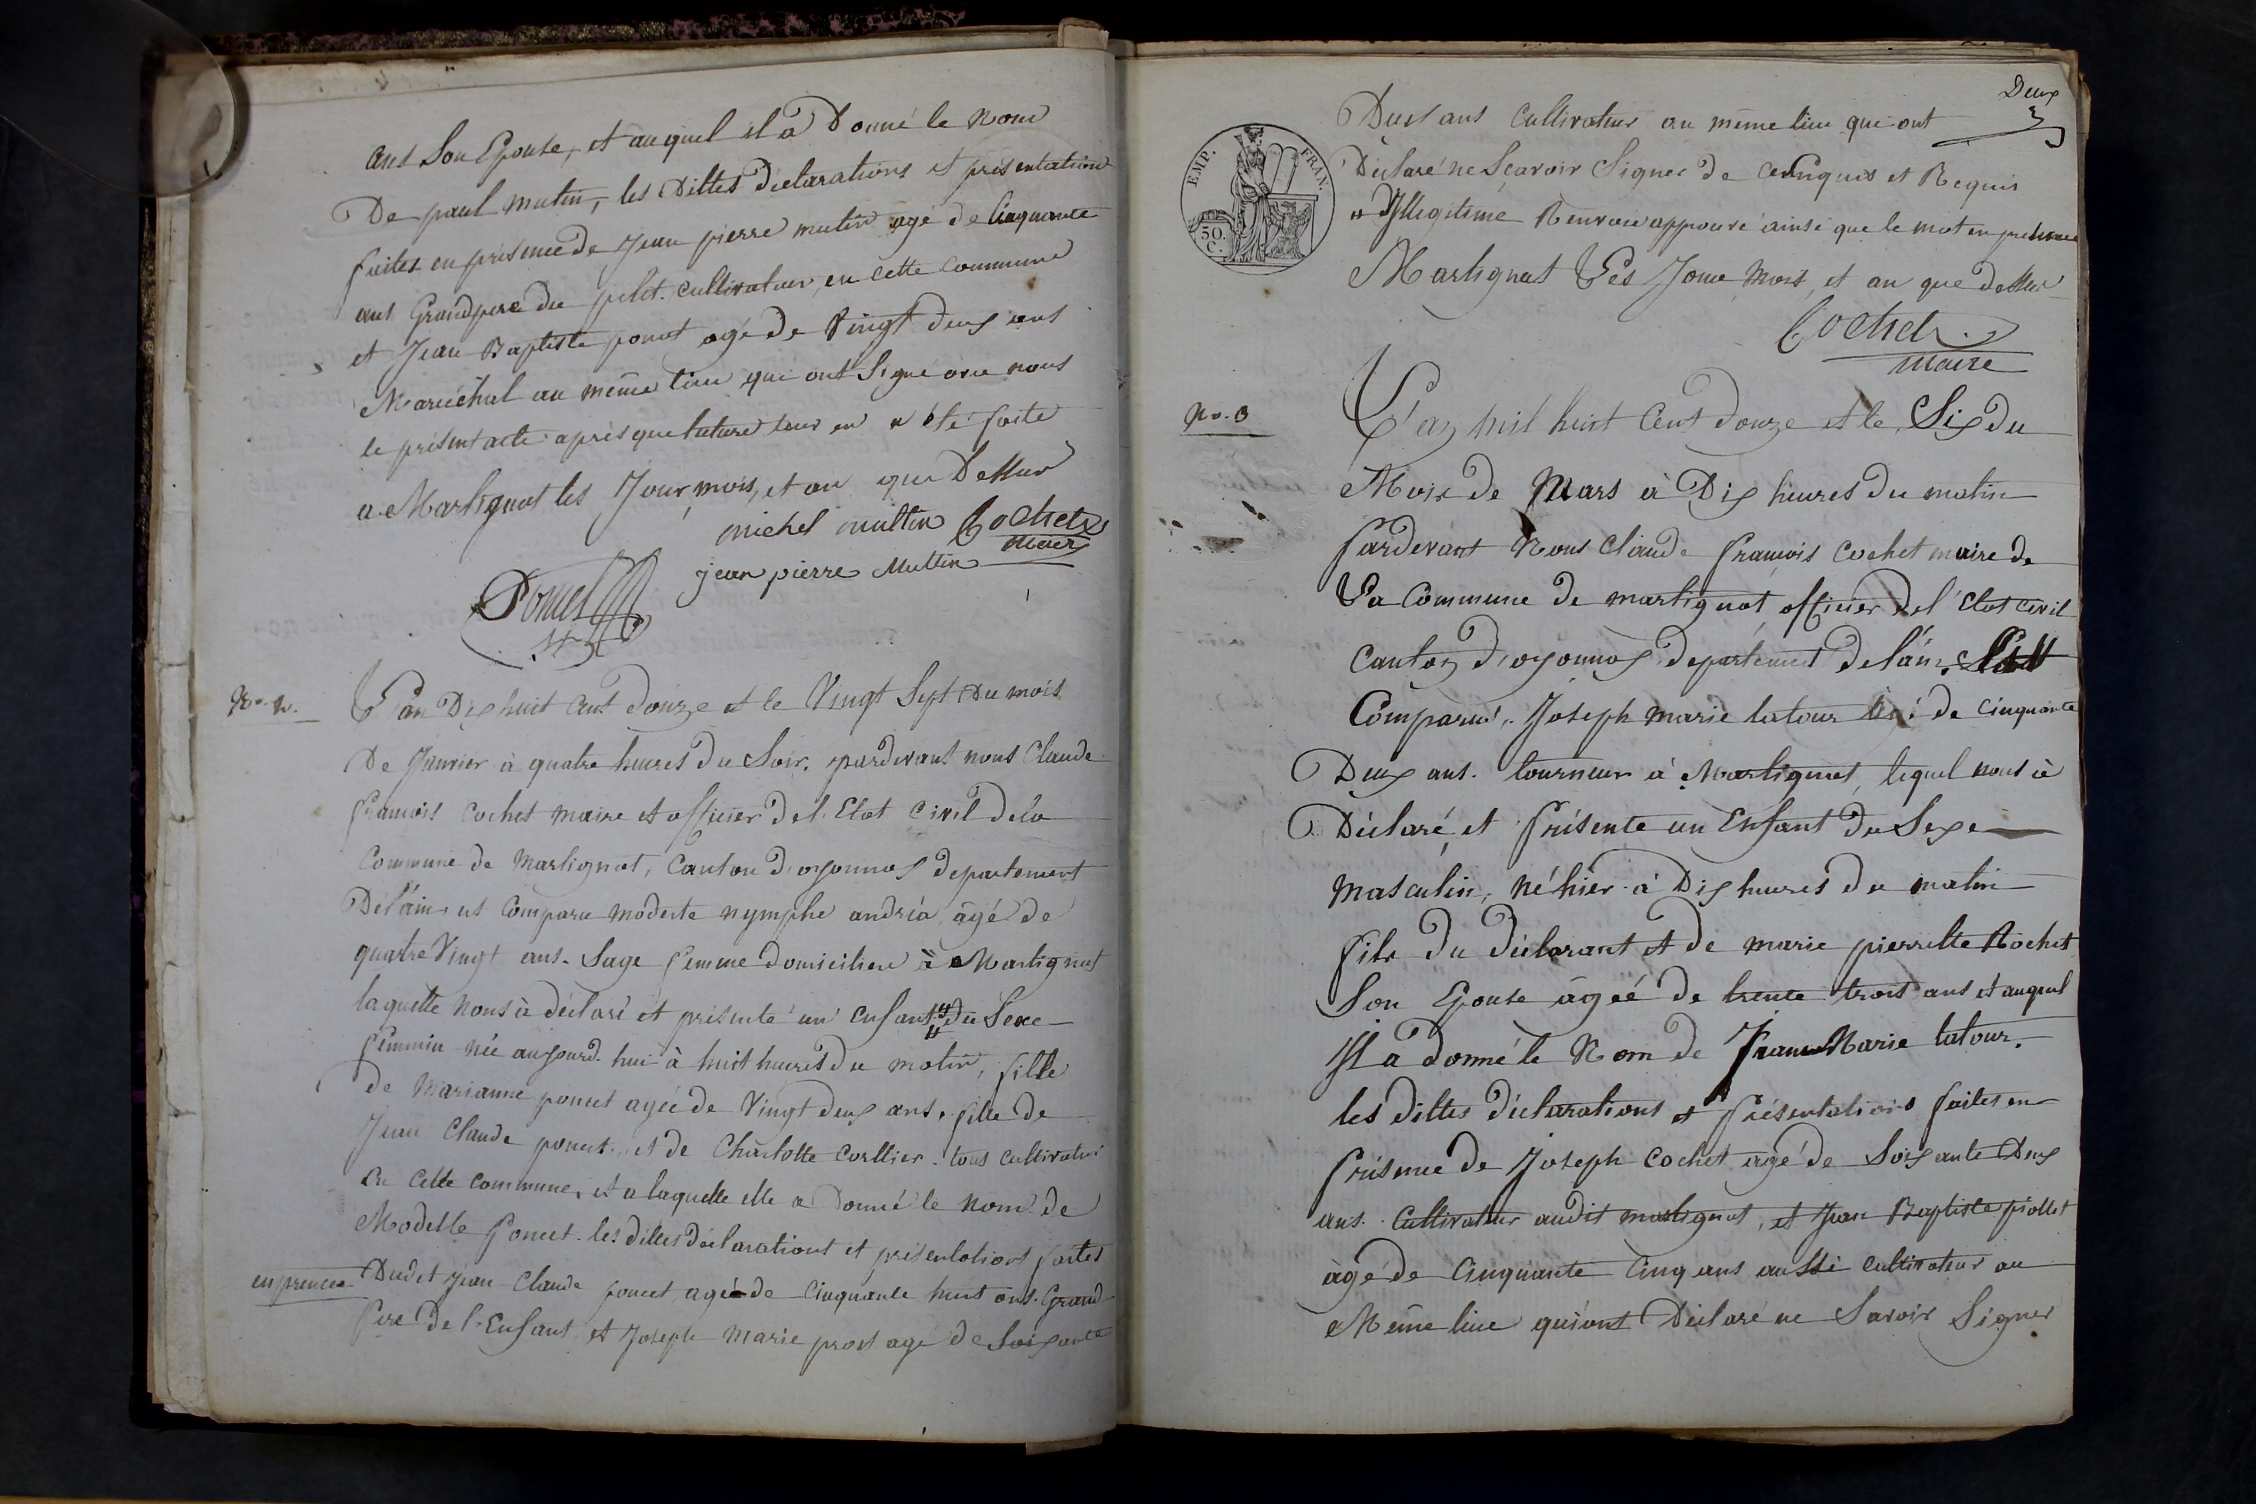 ans Son Epouse, et auquel il a Donné le nom
De paul mutin, les Dittes déclarations et présentation
faites en présence de Jean pierre mutin agé de Cinquante
ans Grandpere du petit. cultivateur, en cette commune
et Jean Baptiste poncet agé de Vingt deux ans
Maréchal au même lieu qui ont Signé avec nous
le présent acte après que lature leur en a été faite
a Martignat les Jour, mois, et an que Dessur
michel multin Cochet
maire
jean pierre Multin
Poncet
No. 2.
L'an Dix huit cent douze et le Vingt Sept du mois
De Janvier à quatre heures du Soir. pardevant nous Claude
francois cochet maire et officier de l. Etat civil dela
Commune de Martignat, Canton d'oyonnax departement
De l'ain, est Comparu modeste nymphe andréa, agé de
quatre Vingt ans. Sage femme domiciliere à Martignat
laquelle nous à déclaré et présenté un enfant # du Sexe
féminin née aujourd. hui à huit heures du matin, fille
de Marianne poncet agée de Vingt deux ans, fille de
Jean Claude poncet. et de Charlotte corllier. tous cultivateur
En Cette commune. et a laquelle elle a Donné le nom de
Modeste Poncet. les dittes déclarations et présentations faites
en prence Dudit Jean Claude poncet, agé de cinquante huit ans. Grand
Pere de l'Enfant et Joseph Marie prost agé de Soixante
Deux
3
EMP. FRAN.
50.
C.
Deux ans Cultivateur au même lieu qui ont
Déclaré ne Sçavoir Signer de ce Enquis et Requis
# Illegitime Renvoie approuvé ainsi que le mot en presence
Martignat Les Jour, Mois, et an que dessur
Cochet
maire
No. 3
L'an mil huit Cent douze et le Six du
Mois de Mars à Dix heures du matin
Pardevant Nous Claude francois cochet maire de
La Commune de martignat, officier del' Etat civil
Canton d'oyonnax, departement de l'ain. Est
Comparu, Joseph marie latour agé de cinquante
Deux ans. tourneur à Martignat, lequel nous à
Déclaré, et Présente un Enfant du Sexe
Masculin, né hier à Dix heures du matin
fils du déclarant et de marie pierrette Rochet
Son Epouse àgeé de trente trois ans et auquel
Il à donné le Nom de Marie latour.
les dittes déclarations et Présentations faites en
Présence de Joseph Cochet agé de Soixante Deux
ans. Cultivateur audit martignat, et Jean Baptiste piollet
àgé de Cinquante Cinq ans aussi cultivateur au
Même lieu qui ont Déclaré ne Savoir Signer